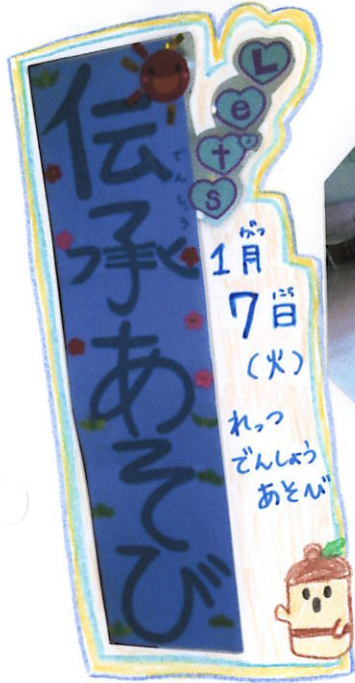 Let's
伝承あそび
でんしょう
1月
がつ
7日
にち
(火)
れっつ
でんしょう
あそび